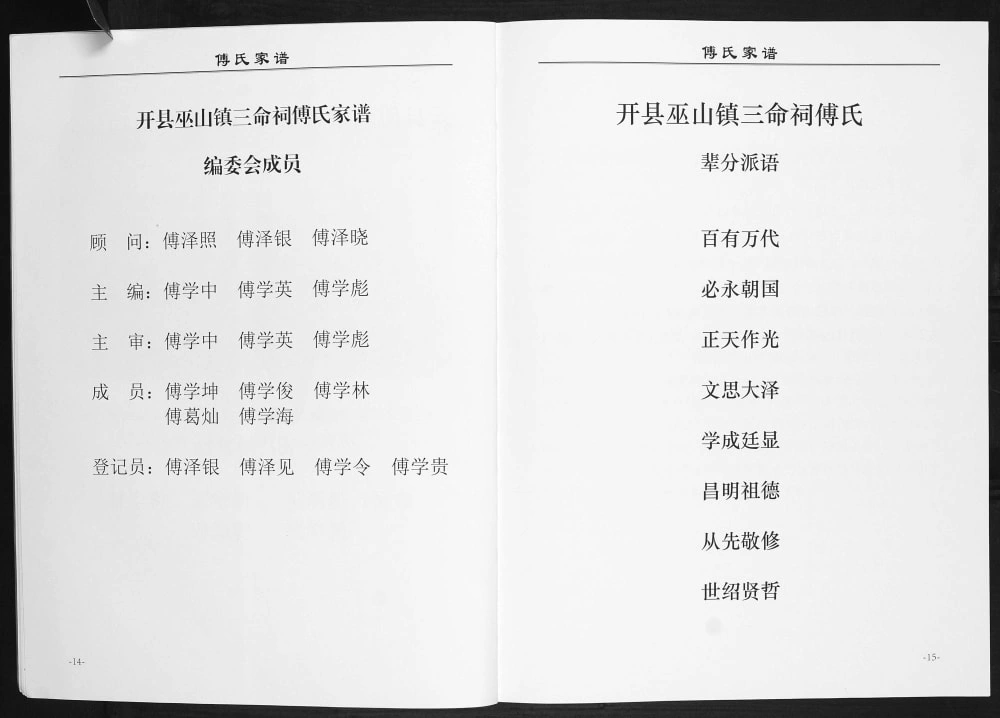 傅氏家谱
开县巫山镇三命祠傅氏家谱
编委会成员
顾　问：傅泽照　傅泽银　傅泽晓
主　编：傅学中　傅学英　傅学彪
主　审：傅学中　傅学英　傅学彪
成　员：傅学坤　傅学俊　傅学林
傅葛灿　傅学海
登记员：傅泽银　傅泽见　傅学令　傅学贵
-14-
傅氏家谱
开县巫山镇三命祠傅氏
辈分派语
百有万代
必永朝国
正天作光
文思大泽
学成廷显
昌明祖德
从先敬修
世绍贤哲
-15-